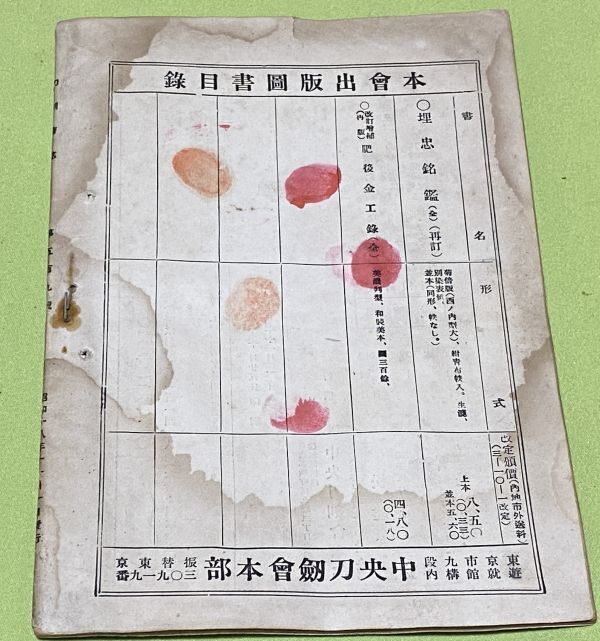 本會出版圖書目錄
書名
形式
改定頒價（內地市外送料）
（三—一〇—一改定）
〇埋忠銘鑑（全）（再訂）
菊倍版（西ノ內型大）、紺靑布帙入。生漉、
別染表紙、
並本（同形、帙なし。）
上本 八、五〇
（〇、三三）
並本五、六〇
〇改訂增補（內版）肥後金工錄（全）
美濃判型、和裝美本、圖三百餘、
四、八〇
（〇、一八）
東京市九段
遊就館構內
中央刀劍會本部
振替東京
三〇九一九番